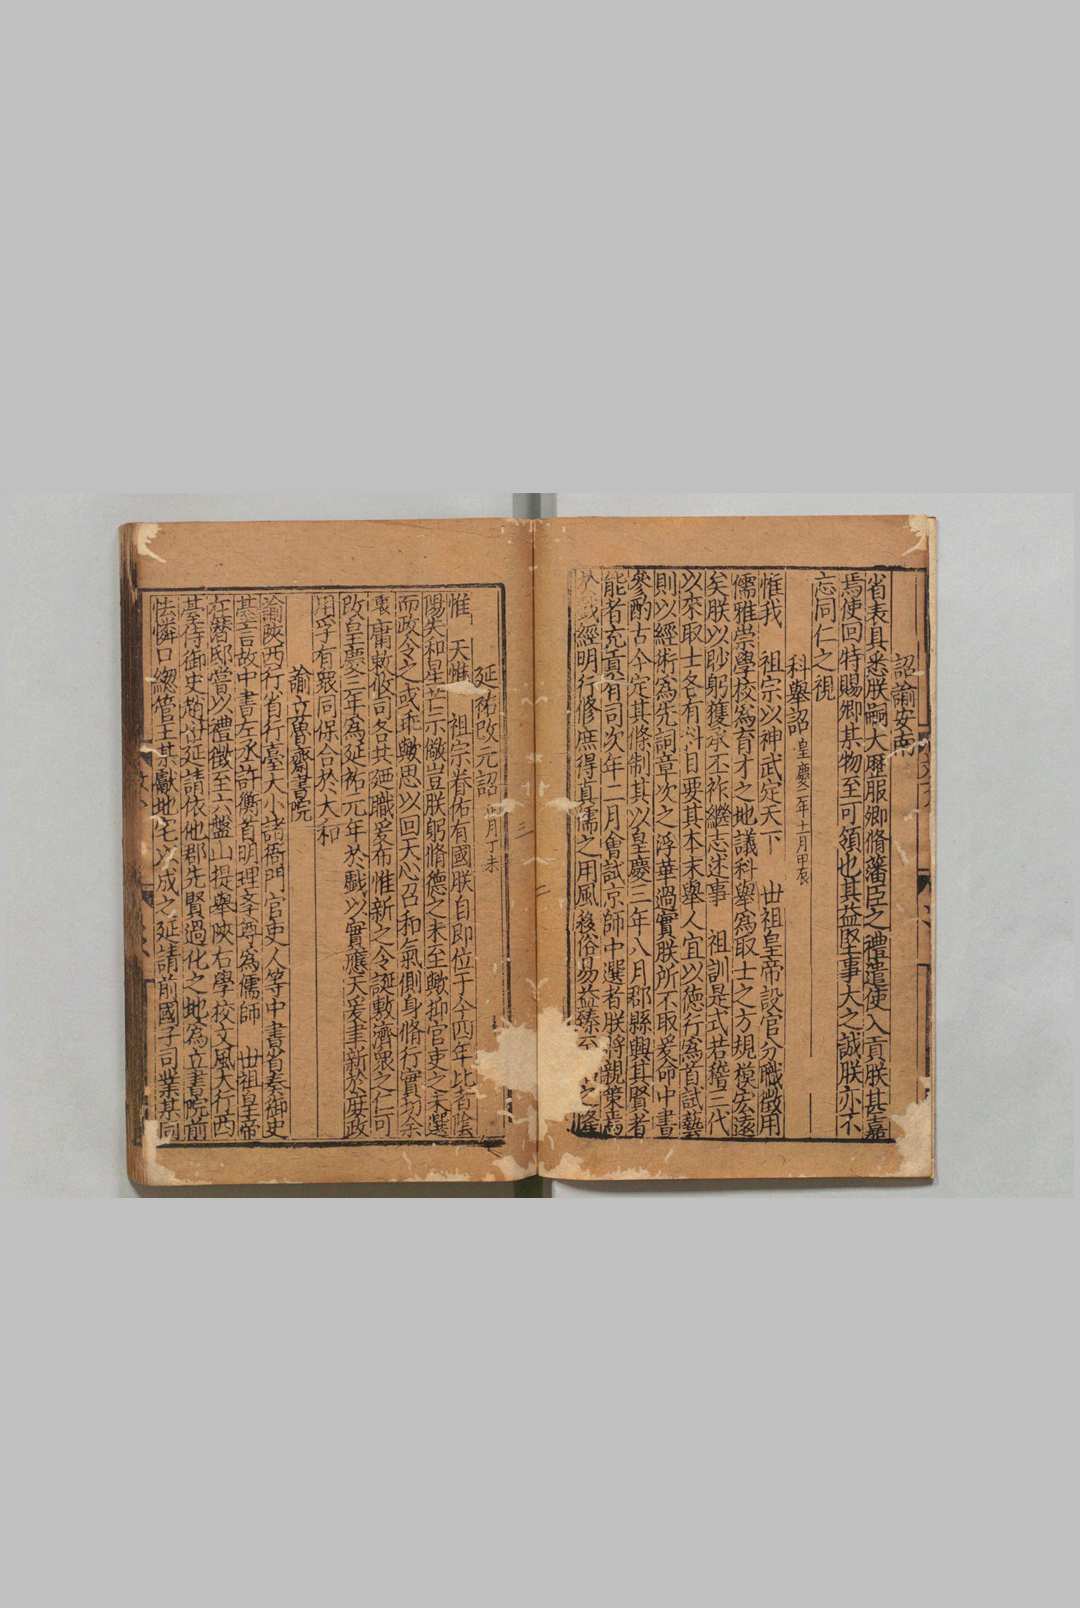 詔諭安南
省表具悉朕嗣大曆服卿脩藩臣之禮遣使入貢朕甚嘉
焉使回特賜卿某物至可領也其益堅事大之誠朕亦不
忘同仁之視
科舉詔 皇慶二年十一月甲辰
惟我 祖宗以神武定天下 世祖皇帝設官分職徵用
儒雅崇學校為育才之地議科舉為取士之方規模宏遠
矣朕以眇躬獲承丕祚繼志述事 祖訓是式若稽三代
以來取士各有科目要其本末舉人宜以德行為首試藝
則以經術為先詞章次之浮華過實朕所不取爰命中書
參酌古今定其條制其以皇慶三年八月郡縣興其賢者
能者充貢有司次年二月會試京師中選者朕將親策焉
於戲經明行修庶得真儒之用風移俗易益臻至之隆
延祐改元詔 四月丁未
惟 天惟 祖宗眷佑有國朕自即位于今四年比者陰
陽失和星芒示儆豈朕躬脩德之未至歟抑官吏之未選
而政令之或乖歟思以回天心召和氣側身脩行實切余
衷庸敕攸司各共廼職爰布惟新之令誕敷濟眾之仁可
改皇慶三年為延祐元年於戲以實應天爰聿新於庶政
用孚有眾同保合於大和
諭立魯齋書院
諭陝西行省行臺大小諸衙門官吏人等中書省奏御史
某言故中書左丞許衡首明理學尊為儒師 世祖皇帝
在潛邸嘗以禮徵至六盤山提舉陝右學校文風大行西
臺侍御史趙世延請依他郡先賢過化之地為立書院前
怯憐口總管王某獻地宅以成之延請前國子司業某同